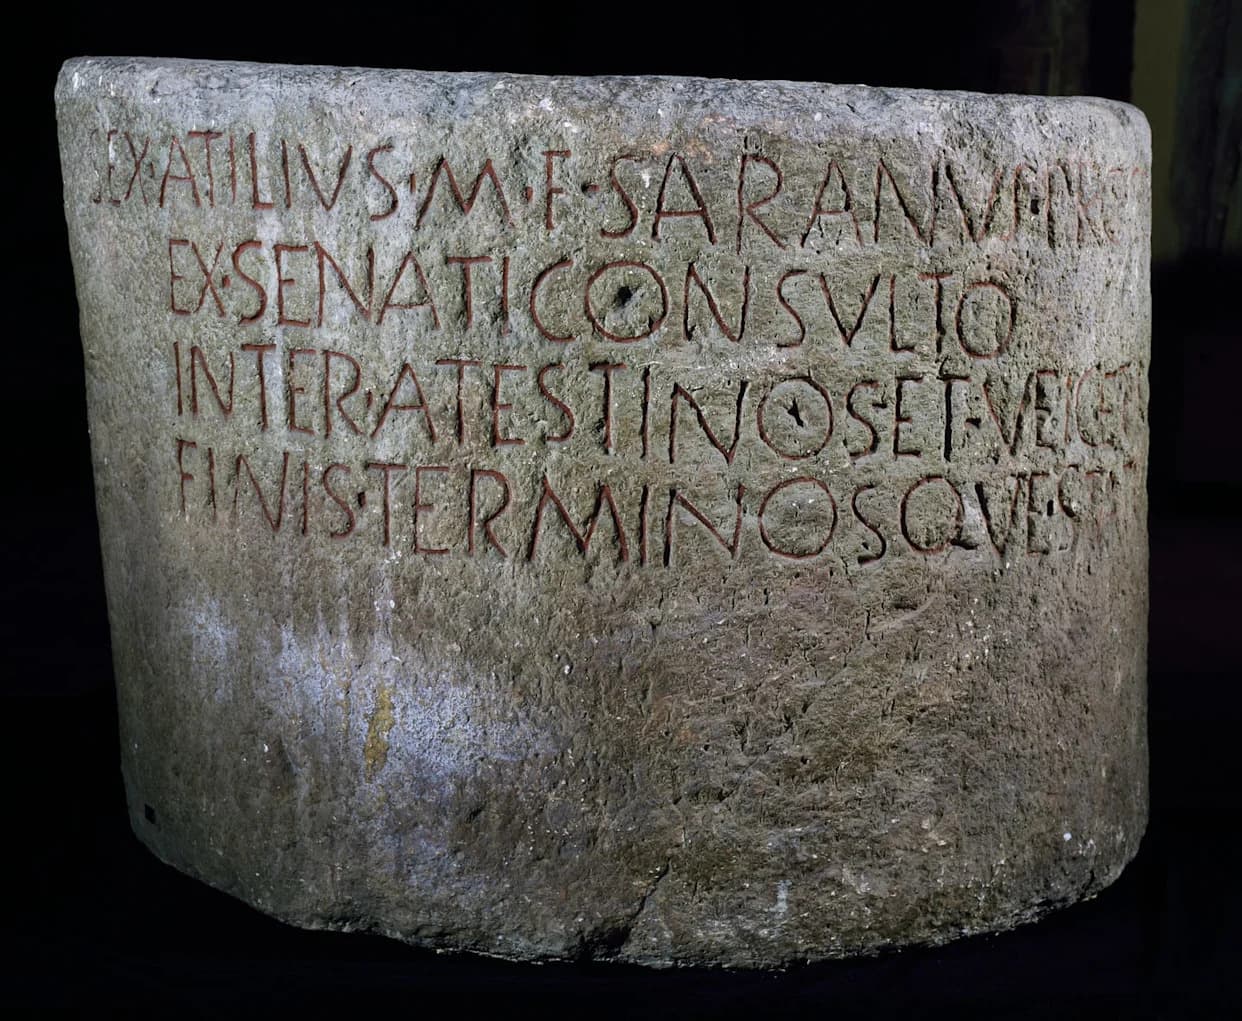 SEX·ATILIVS·M·F·SARANVS·PRO
EX·SENATI CONSVLTO
INTER·ATESTINOS·ET·VEICET
FINIS·TERMINOSQVE·ST